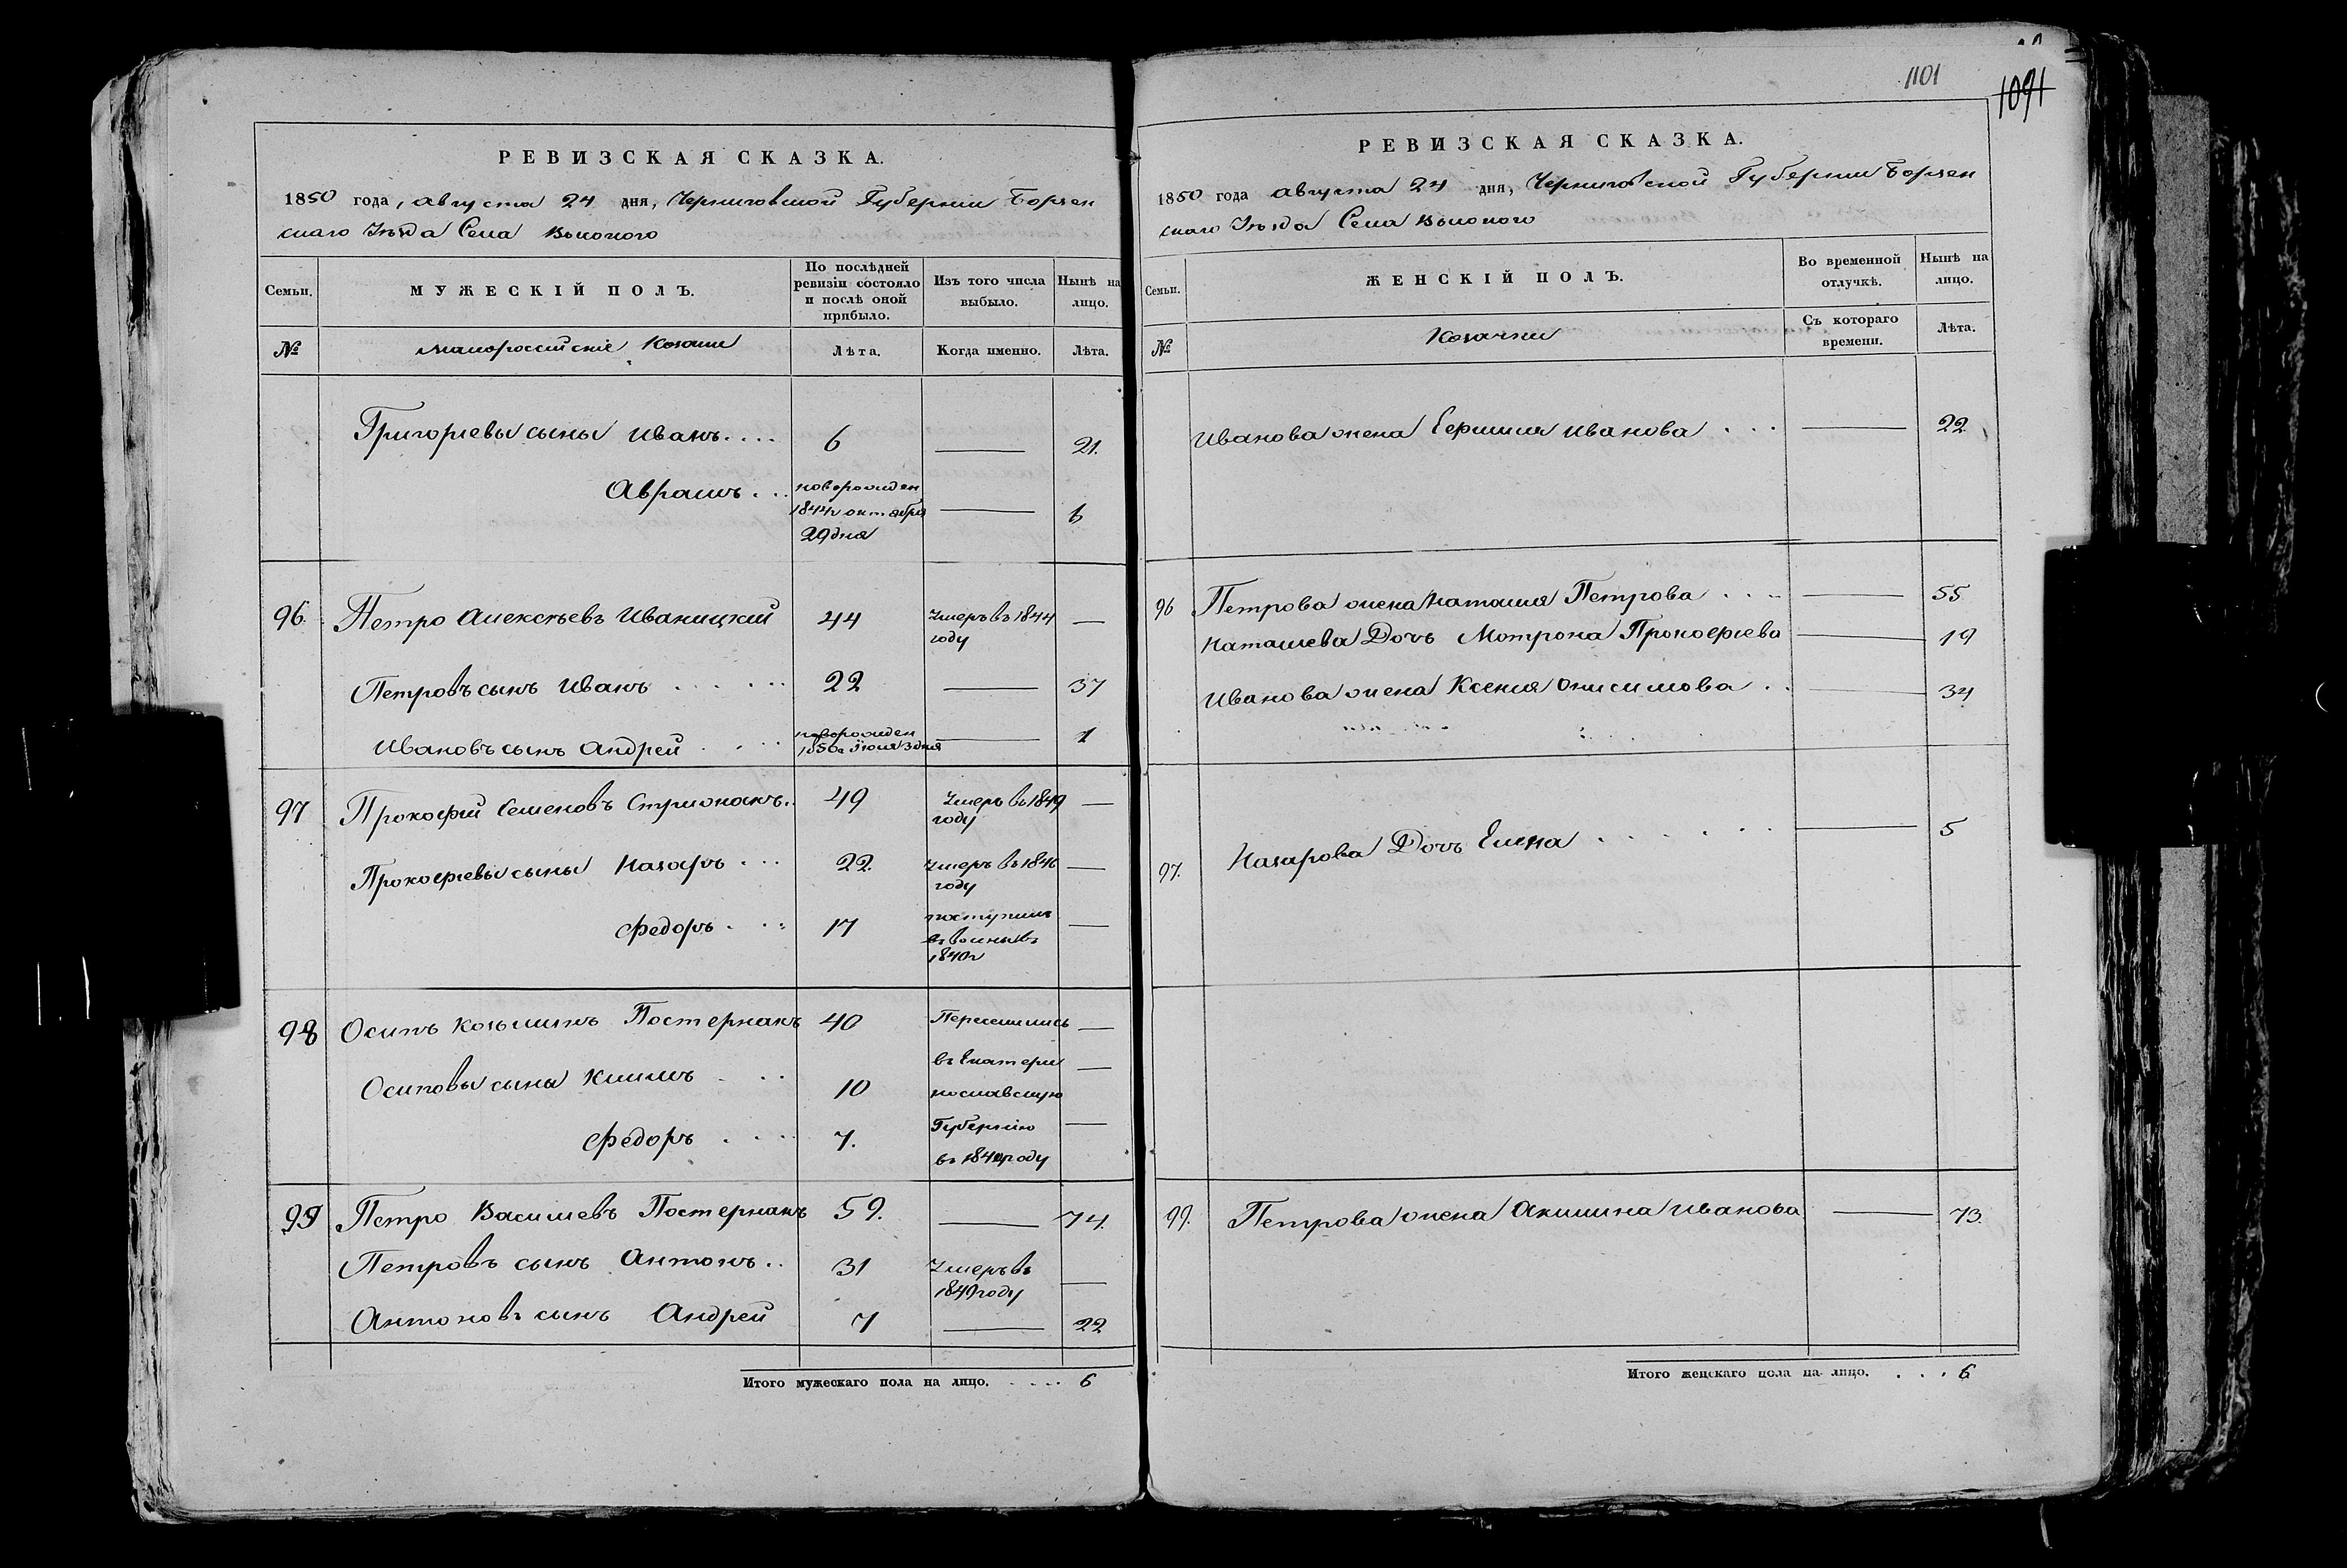 РЕВИЗСКАЯ СКАЗКА.
1850 года, августа 24 дня, Черниговской Губернии Борзен
скаго Уѣзда Села Вьюного
Семьи.
МУЖЕСКІЙ ПОЛЪ.
По послѣдней ревизіи состояло и послѣ оной прибыло.
Изъ того числа выбыло.
Нынѣ на лицо.
№
Малороссійскіе Козаки
Лѣта.
Когда именно.
Лѣта.
Григорьевы сыны Иванъ.... 6 — 21.
Аврамъ... новорожден 1844г октября 29 дня — 6
96. Петро Алексѣевъ Иваницкій 44 Умеръ въ 1844 году —
Петровъ сынъ Иванъ 22 — 37
Ивановъ сынъ Андрей новорожден 1850г Іюля 3 дня — 1
97 Прокофій Семеновъ 49 Умеръ въ 1849 году —
Прокофьевы сыны Назаръ ... 22. Умеръ въ 1846 году —
Федоръ ... 17 поступилъ 1840г —
98 Осипъ Козьминъ Постернакъ 40 Переселились —
Осиповы сыны Климъ 10 въ Екатери нославскую —
Федоръ 7. Губернію —
99 Петро Васильевъ Постернакъ 59. — 74.
Петровъ сынъ Антонъ.. 31 Умеръ въ 1849 году —
Антоновъ сынъ Андрей 7 — 22
Итого мужескаго пола на лицо. .... 6
1101
1091
РЕВИЗСКАЯ СКАЗКА.
1850 года августа 24 дня, Черниговской Губернии Борзен
скаго Уѣзда Села Вьюного
Семьи.
ЖЕНСКІЙ ПОЛЪ.
Во временной отлучкѣ.
Нынѣ на лицо.
№
Козачки
Съ котораго времени.
Лѣта.
Иванова жена Ефимия Иванова ... — 22
96 Петрова жена Наталия Петрова .... — 55
Наталиева Дочь Мотрона Прокофьева — 19
Иванова жена Ксения Онисимова .. — 34
97. Назарова Дочь Елена — 5
99. Петрова жена Акилина Иванова — 73.
Итого женскаго пола на лицо. .... 6